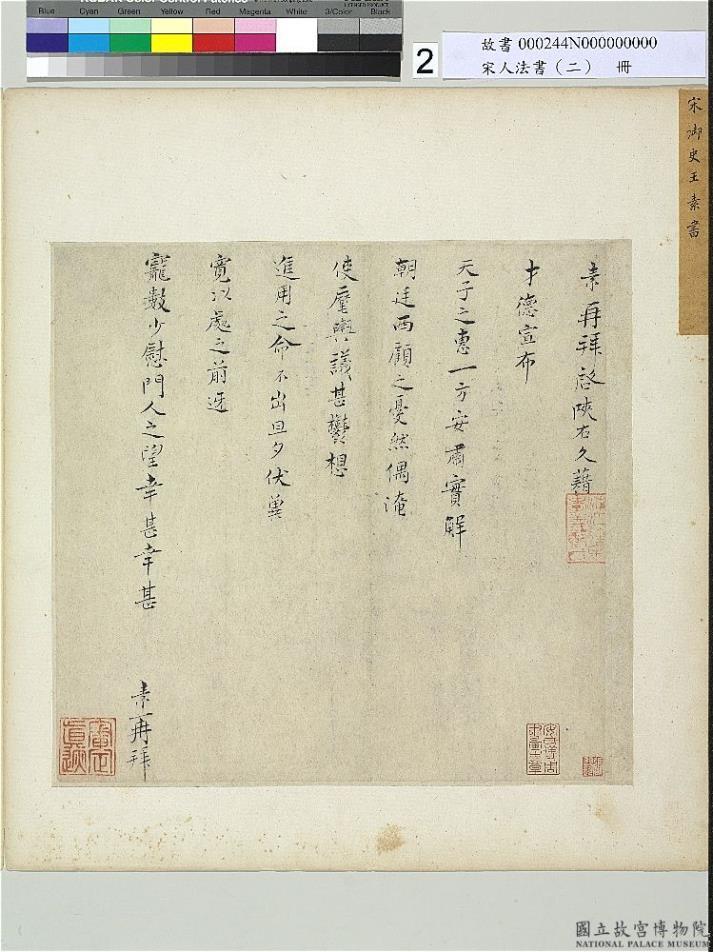 Blue Cyan Green Yellow Red Magenta White 3/Color Black
2
故書 000244N000000000
宋人法書（二） 冊
宋御史王素書
素再拜啓陝右久藉
才德宣布
天子之惠一方安肅實解
朝廷西顧之憂然偶淹
使麾輿議甚鬱想
進用之命不出旦夕伏冀
寬以處之前迓
寵數少慰門人之望幸甚幸甚
素再拜
國立故宮博物院
NATIONAL PALACE MUSEUM